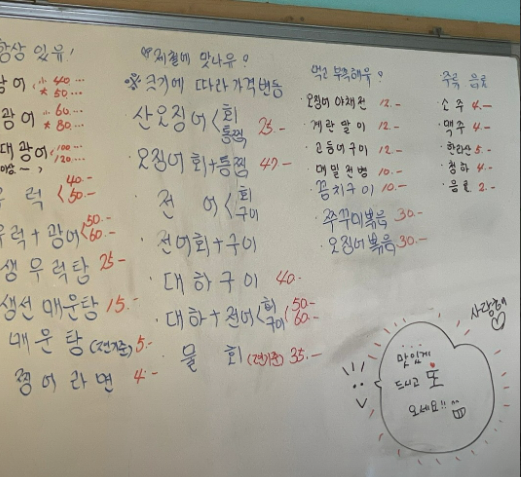 항상 있유!
광어 小 40...
大 50...
광어 60...
80...
대광어 100...
120...
우럭 < 40.-
50.-
우럭 + 광어 < 50.-
60.-
생우럭탕 25.-
생선 매운탕 15.-
매운탕 5.-
찡어라면 4.-
제철에 맛나유?
※ 크기에 따라 가격변동
· 산오징어 < 회
통찜 25.-
· 오징어 회+통찜 47.-
· 전어 < 회
구이
· 전어회+구이
· 대하구이 40.
· 대하+전어 < 회
구이 < 50.-
60.-
· 물회 35.-
먹고 부족해유?
· 오징어 야채전 12.-
· 계란말이 12.-
· 고등어구이 12.-
· 메밀전병 10.-
· 꽁치구이 10.-
쭈꾸미볶음 30.-
· 오징어볶음 30.-
· 주류 음료
· 소주 4.-
· 맥주 4.-
· 한라산 5.-
· 청하 4.-
· 음료 2.-
사랑해 ♡
맛있게
드시고 또
오세요!!